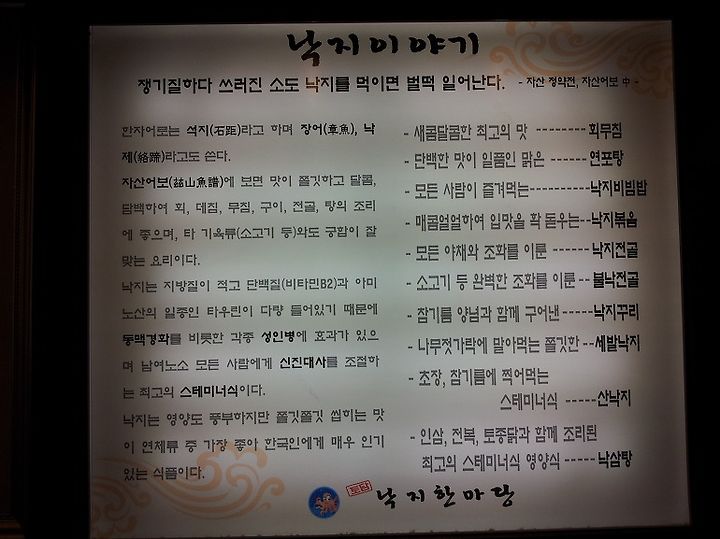 낙지이야기
쟁기질하다 쓰러진 소도 낙지를 먹이면 벌떡 일어난다. - 자산 정약전, 자산어보 中 -
한자어로는 석지(石距)라고 하며 장어(章魚), 낙
제(絡蹄)라고도 쓴다.
자산어보(玆山魚譜)에 보면 맛이 쫄깃하고 달콤,
담백하여 회, 데침, 무침, 구이, 전골, 탕의 조리
에 좋으며, 타 기육류(소고기 등)와도 궁합이 잘
맞는 요리이다.
낙지는 지방질이 적고 단백질(비타민B2)과 아미
노산의 일종인 타우린이 다량 들어있기 때문에
동맥경화를 비롯한 각종 성인병에 효과가 있으
며 남여노소 모든 사람에게 신진대사를 조절하
는 최고의 스테미너식이다.
낙지는 영양도 풍부하지만 쫄깃쫄깃 씹히는 맛
이 연체류 중 가장 좋아 한국인에게 매우 인기
있는 식품이다.
- 새콤달콤한 최고의 맛 --------- 회무침
- 단백한 맛이 일품인 맑은 ------ 연포탕
- 모든 사람이 즐겨먹는----------- 낙지비빔밥
- 매콤얼얼하여 입맛을 확 돋우는--낙지볶음
- 모든 야채와 조화를 이룬 ------낙지전골
- 소고기 등 완벽한 조화를 이룬 -- 불낙전골
- 참기름 양념과 함께 구어낸------낙지꾸리
- 나무젓가락에 말아먹는 쫄깃한 --세발낙지
- 초장, 참기름에 찍어먹는
스테미너식 ------산낙지
- 인삼, 전복, 토종닭과 함께 조리된
최고의 스테미너식 영양식------낙삼탕
토담 낙지한마당